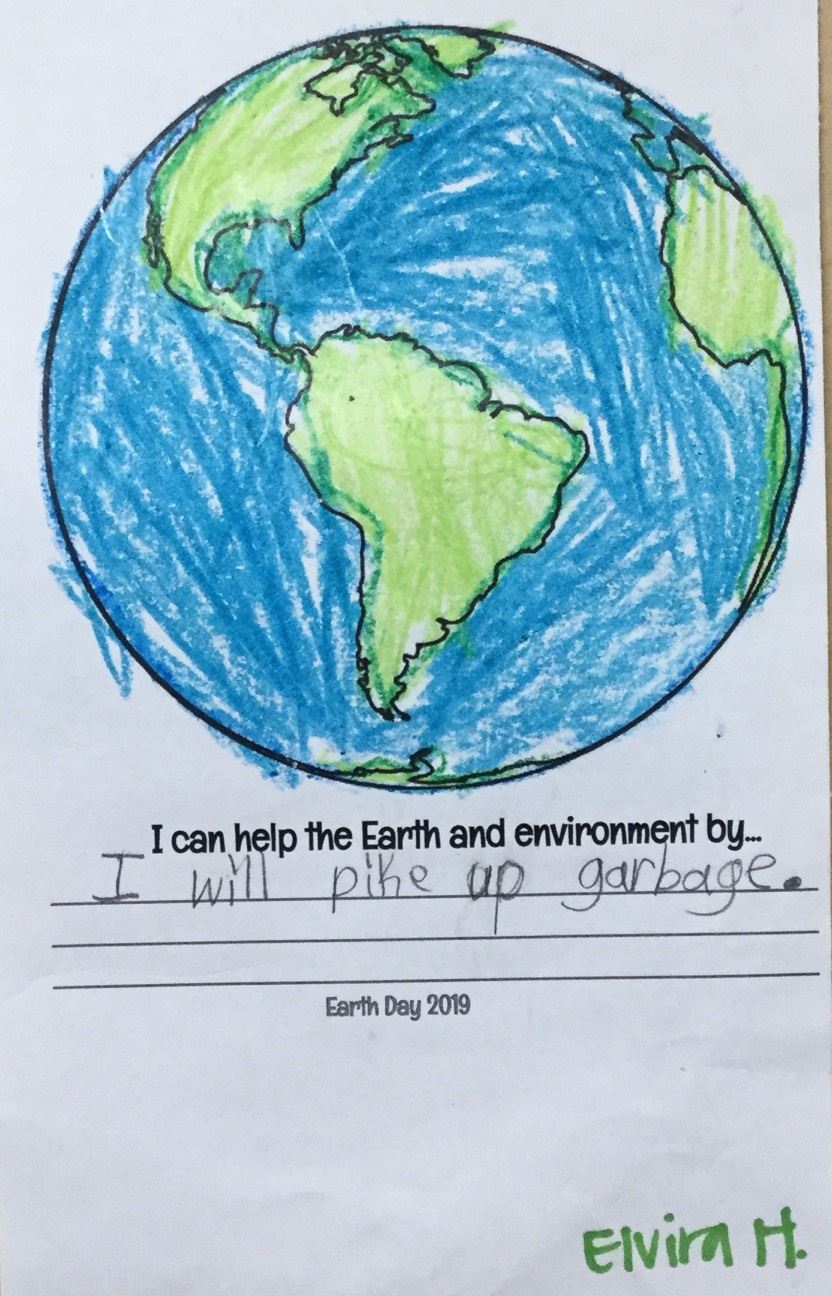 I can help the Earth and environment by...
I will pike up garbage.
Earth Day 2019
Elvira H.